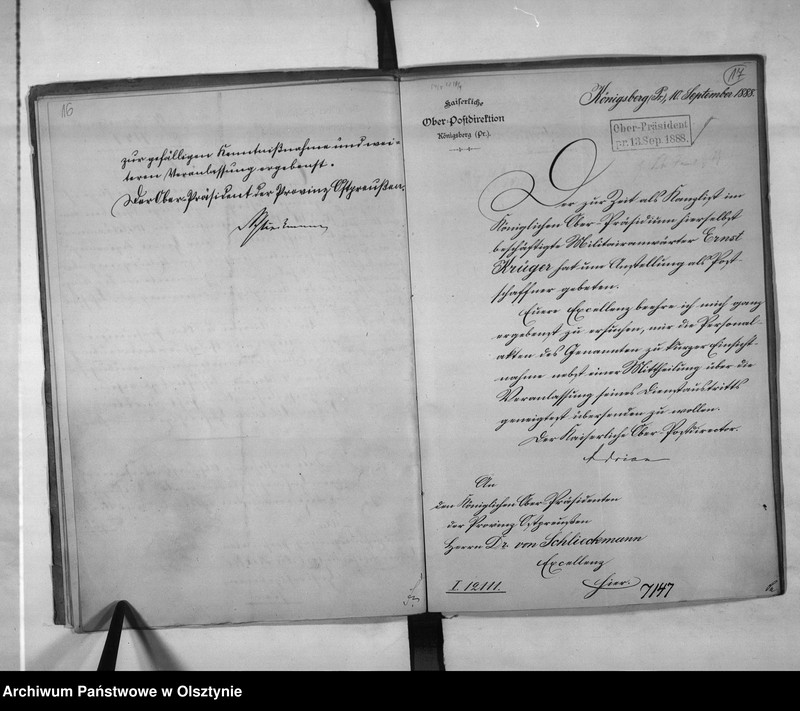 16
zur gefälligen Kenntnißnahme und wei-
teren Veranlassung ergebenst.
Der Ober-Präsident der Provinz Ostpreußen.
Schlieckmann
Kaiserliche
Ober-Postdirektion
Königsberg (Pr.)
17
Königsberg (Pr.), 10. September 1888.
Ober-Präsident
pr. 13. Sep. 1888.
Der zur Zeit als Kanzlist im
Königlichen Ober-Präsidium hierselbst
beschäftigte Militairanwärter Ernst
Krüger hat um Anstellung als Post-
schaffner gebeten.
Euere Excellenz beehre ich mich ganz
ergebenst zu ersuchen, mir die Personal-
akten des Genannten zu kurzer Einsicht-
nahme nebst einer Mittheilung über die
Veranlassung seines Dienstaustritts
geneigtest übersenden zu wollen.
Der Kaiserliche Ober-Postdirector.
An
den Königlichen Ober-Präsidenten
der Provinz Ostpreußen
Herrn Dr. von Schlieckmann
Excellenz
hier.
I. 12111.
7147
Archiwum Państwowe w Olsztynie